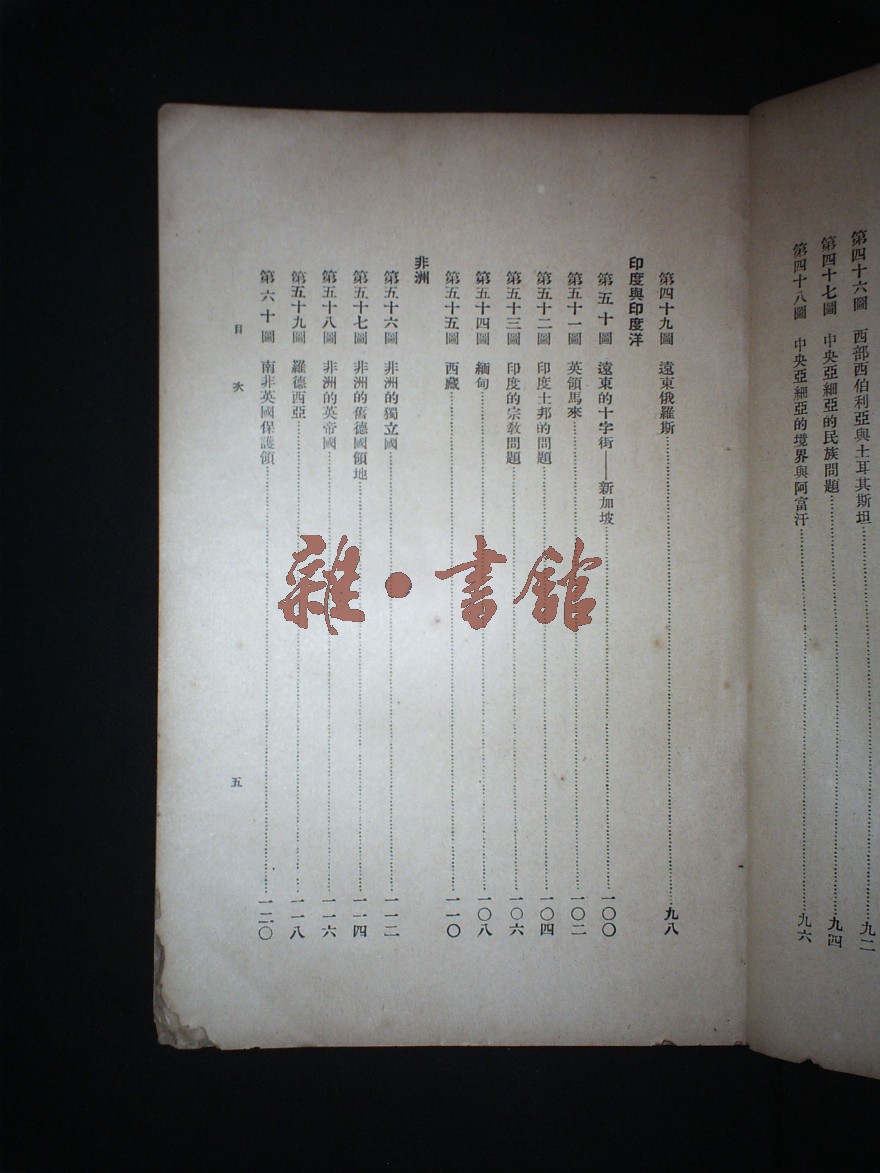 第四十六圖　西部西伯利亞與土耳其斯坦……九二
第四十七圖　中央亞細亞的民族問題……九四
第四十八圖　中央亞細亞的境界與阿富汗……九六
第四十九圖　遠東俄羅斯……九八
印度與印度洋
第五十圖　遠東的十字街——新加坡……一〇〇
第五十一圖　英領馬來……一〇二
第五十二圖　印度土邦的問題……一〇四
第五十三圖　印度的宗教問題……一〇六
第五十四圖　緬甸……一〇八
第五十五圖　西藏……一一〇
非洲
第五十六圖　非洲的獨立國……一一二
第五十七圖　非洲的舊德國領地……一一四
第五十八圖　非洲的英帝國……一一六
第五十九圖　羅德西亞……一一八
第六十圖　南非英國保護領……一二〇
目次　五
雜·書館